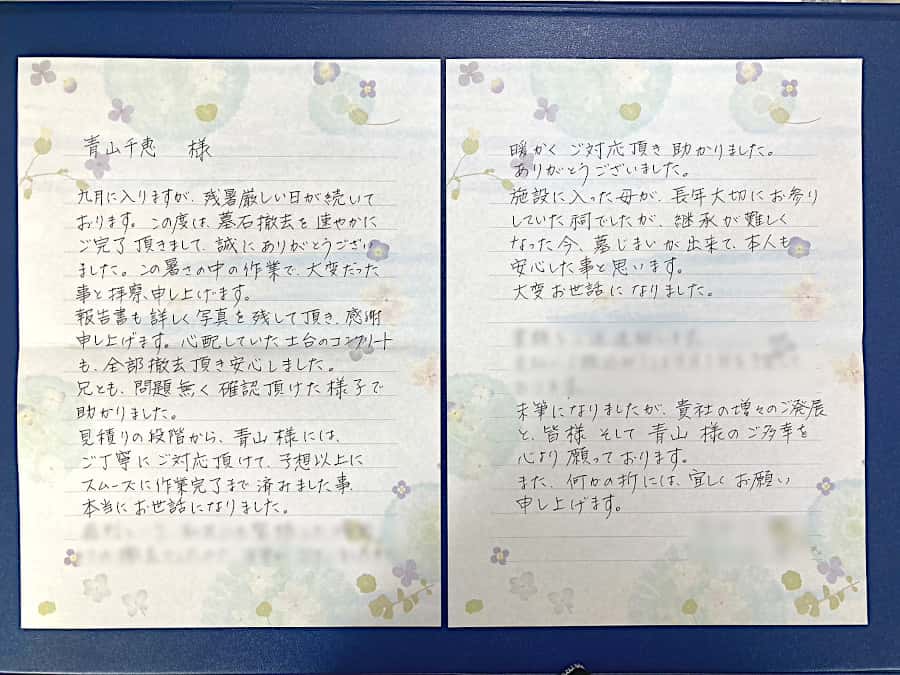 青山千恵 様
九月に入りますが、残暑厳しい日が続いて
おります。この度は、墓石撤去を速やかに
ご完了頂きまして、誠にありがとうござい
ました。この暑さの中の作業で、大変だった
事と拝察、申し上げます。
報告書も詳しく写真を残して頂き、感謝
申し上げます。心配していた土台のコンクリート
も、全部撤去頂き安心しました。
兄とも、問題無く確認頂けた様子で
助かりました。
見積りの段階から、青山様には、
ご丁寧にご対応頂けて、予想以上に
スムーズに作業完了まで済みました事、
本当にお世話になりました。
暖かくご対応頂き助かりました。
ありがとうございました。
施設に入った母が、長年大切にお参り
していた祠でしたが、継承が難しく
なった今、墓じまいが出来て、本人も
安心した事と思います。
大変お世話になりました。
末筆になりましたが、貴社の増々のご発展
と、皆様そして青山様のご多幸を
心より願っております。
また、何かの折には、宜しくお願い
申し上げます。